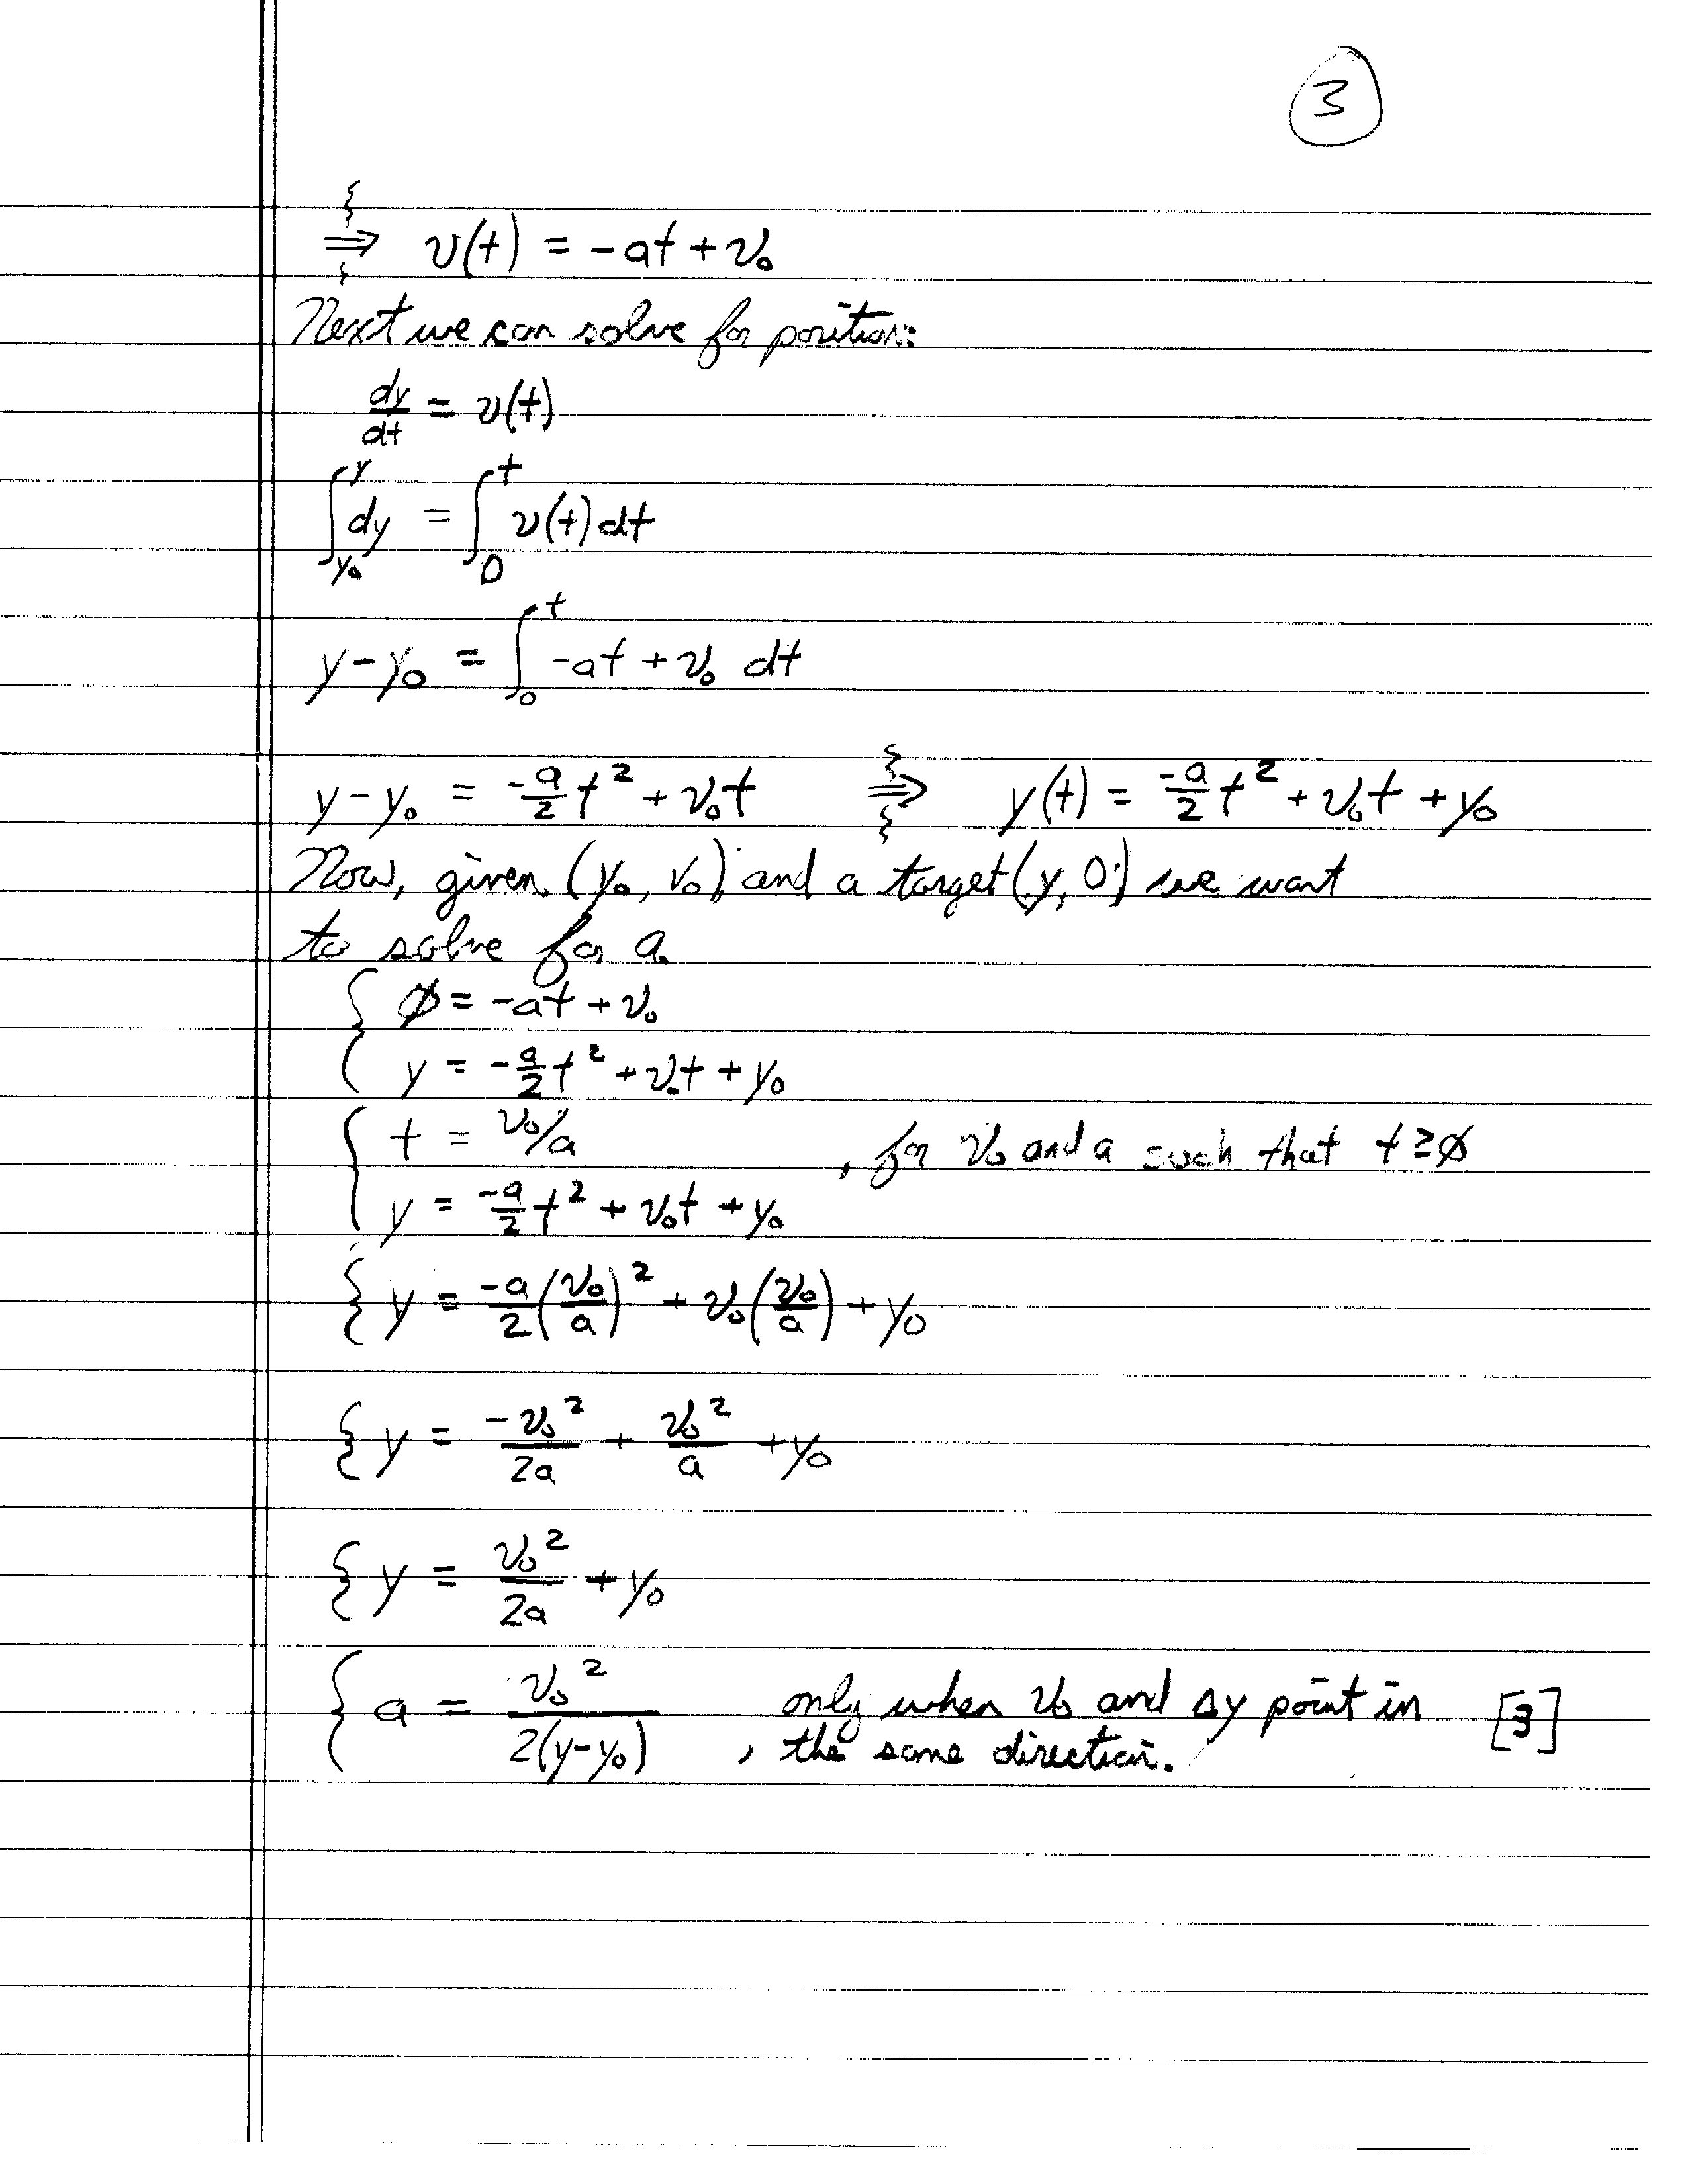 3
⇒ v(t) = -at + v₀
Next we can solve for position:
dy/dt = v(t)
∫_{y₀}^{y} dy = ∫_{0}^{t} v(t) dt
y - y₀ = ∫_{0}^{t} -at + v₀ dt
y - y₀ = -a/2 t² + v₀t ⇒ y(t) = -a/2 t² + v₀t + y₀
Now, given (y₀, v₀) and a target (y, 0) we want
to solve for a.
{ ∅ = -at + v₀
y = -a/2 t² + v₀t + y₀
{ t = v₀/a , for v₀ and a such that t ≥ ∅
y = -a/2 t² + v₀t + y₀
{ y = -a/2 (v₀/a)² + v₀(v₀/a) + y₀
{ y = -v₀²/2a + v₀²/a + y₀
{ y = v₀²/2a + y₀
{ a = v₀²/2(y-y₀) , only when v₀ and Δy point in [3]
the same direction.